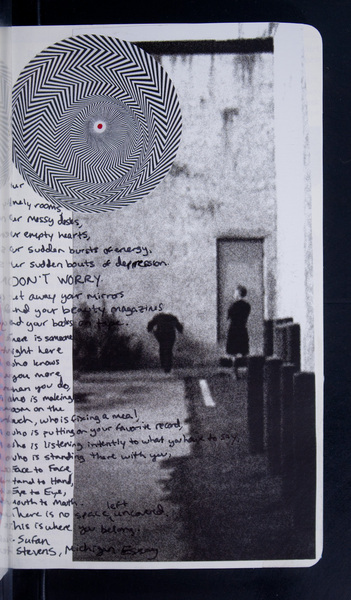 ur
nely rooms,
ur messy desks,
ur empty hearts,
ur sudden bursts of energy,
ur sudden bouts of depression.
DON'T WORRY.
ut away your mirrors
nd your beauty magazines
nd your books on tape.
here is someone
right here
who knows
you more
than you do,
who is making
room on the
couch, who is fixing a meal,
who is putting on your favorite record,
who is listening intently to what you have to say,
who is standing there with you,
Face to Face,
Hand to Hand,
Eye to Eye,
mouth to Mouth.
There is no space left uncovered.
This is where you belong.
- Sufjan
Stevens, Michigan Essay